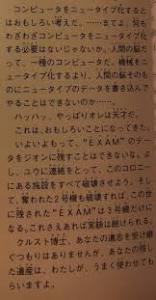 コンピュータをニュータイプ化すると
はおもしろい考えだ。……まてよ、何も
わざわざコンピュータをニュータイプ化
する必要はないじゃないか。人間の脳だ
って、一種のコンピュータだ。機械をニ
ュータイプ化するより、人間の脳そのも
のにニュータイプのデータを書き込んで
やることはできないのか……。
ハッハッ、やっぱりオレは天才だ。
これは、おもしろいことになってきた。
いよいよもって、"EXAM"のデー
タをジオンに残すことはできないな。よ
し、ユウに連絡をとって、このコロニー
にある施設をすべて破壊させよう。そし
て、奪われた2号機も破壊すれば、この世
に残された"EXAM"は3号機だけに
なる。これさえあれば実験は続けられる。
クルスト博士、あなたの遺志を受け継
ぐつもりはありませんが、あなたの残し
た遺産は、わたしが、うまく使わせても
らいますよ。